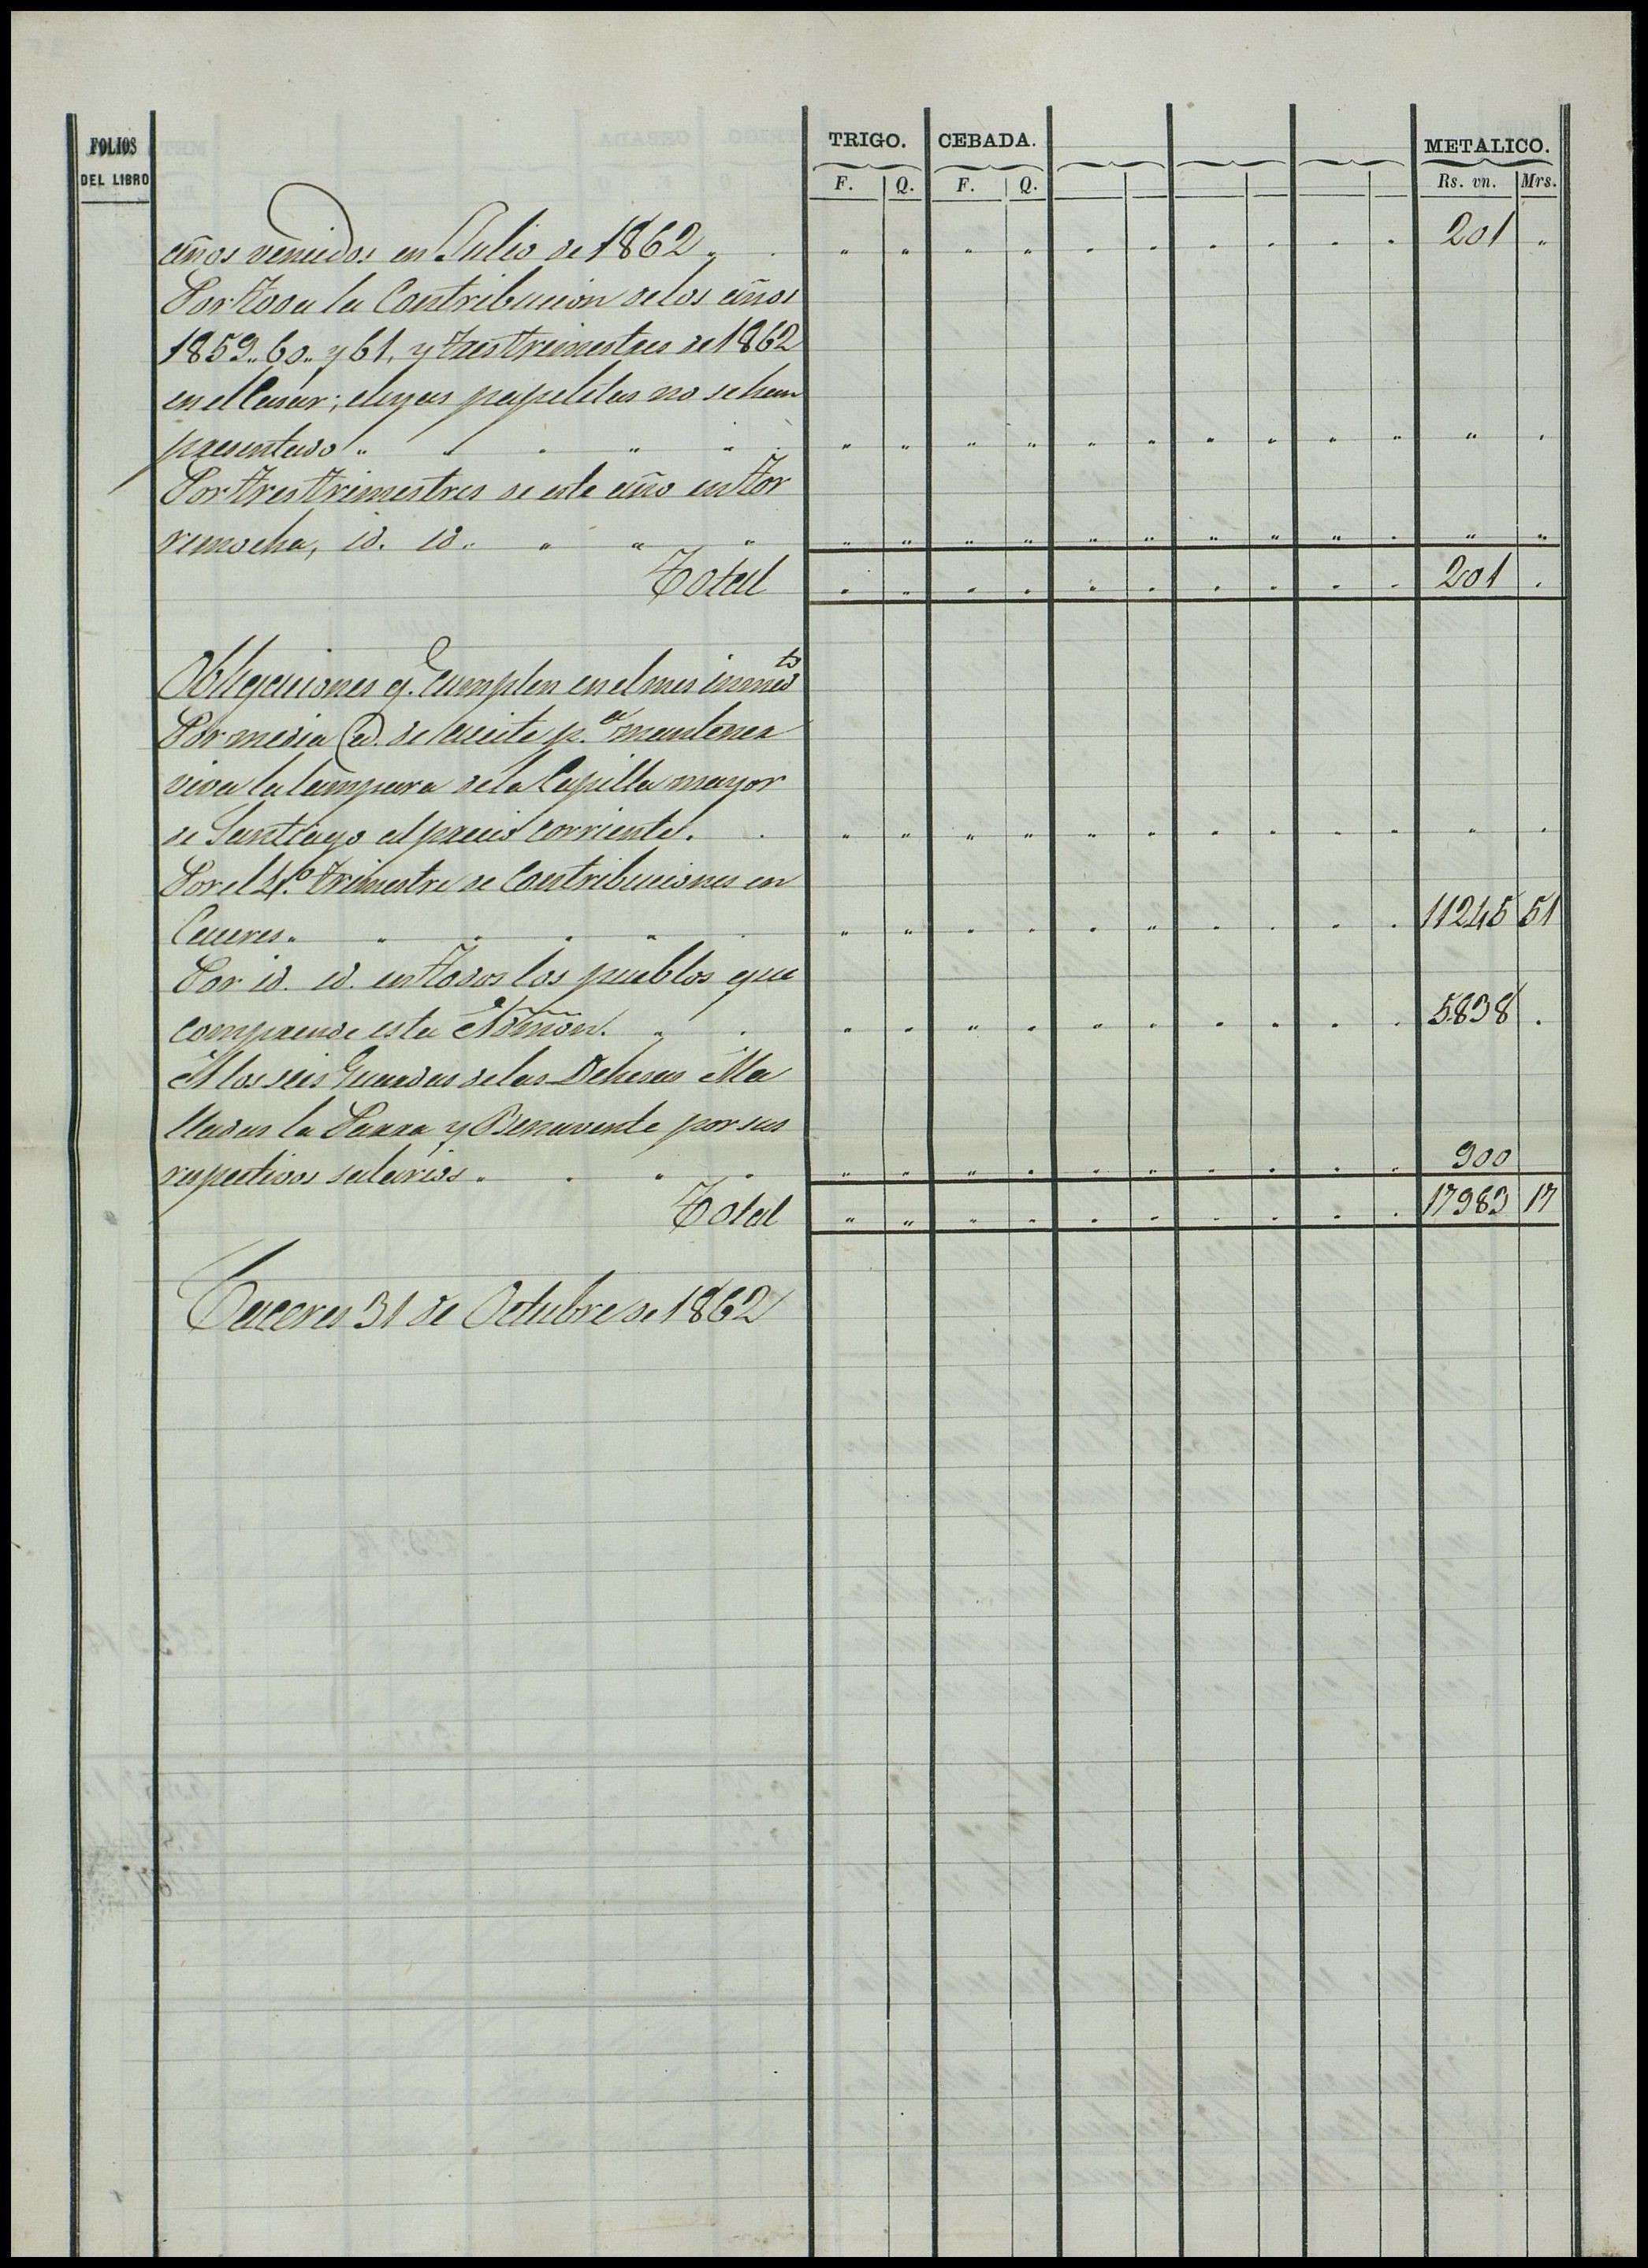 FOLIOS DEL LIBRO TRIGO. CEBADA. METALICO.
F. Q. F. Q. Rs. vn. Mrs.
años vencidos en Julio de 1862 " 201 "
Por toda la Contribucion de los años
1859 " 60 " y 61, y tres trimestres de 1862
en el Casar; cuyas papeletas no se han
presentado "
Por tres trimestres de este año en Tor
remocha, id. id. "
Total 201 "
Obligaciones q. Cumplen en el mes inmedto
Por media @. de aceite p.a mantener
viva la lampara de la Capilla mayor
de Santiago al precio corriente.
Por el 4.o trimestre de Contribuciones en
Caceres " 11245 51
Por id. id. en todos los pueblos que
comprende esta Admon. 5.838 "
A los seis Guardas de las Dehesas Ma
lladas la Parra y Benavente por sus
respectivos salarios " 900
Total 17983 17
Caceres 31 de Octubre de 1862